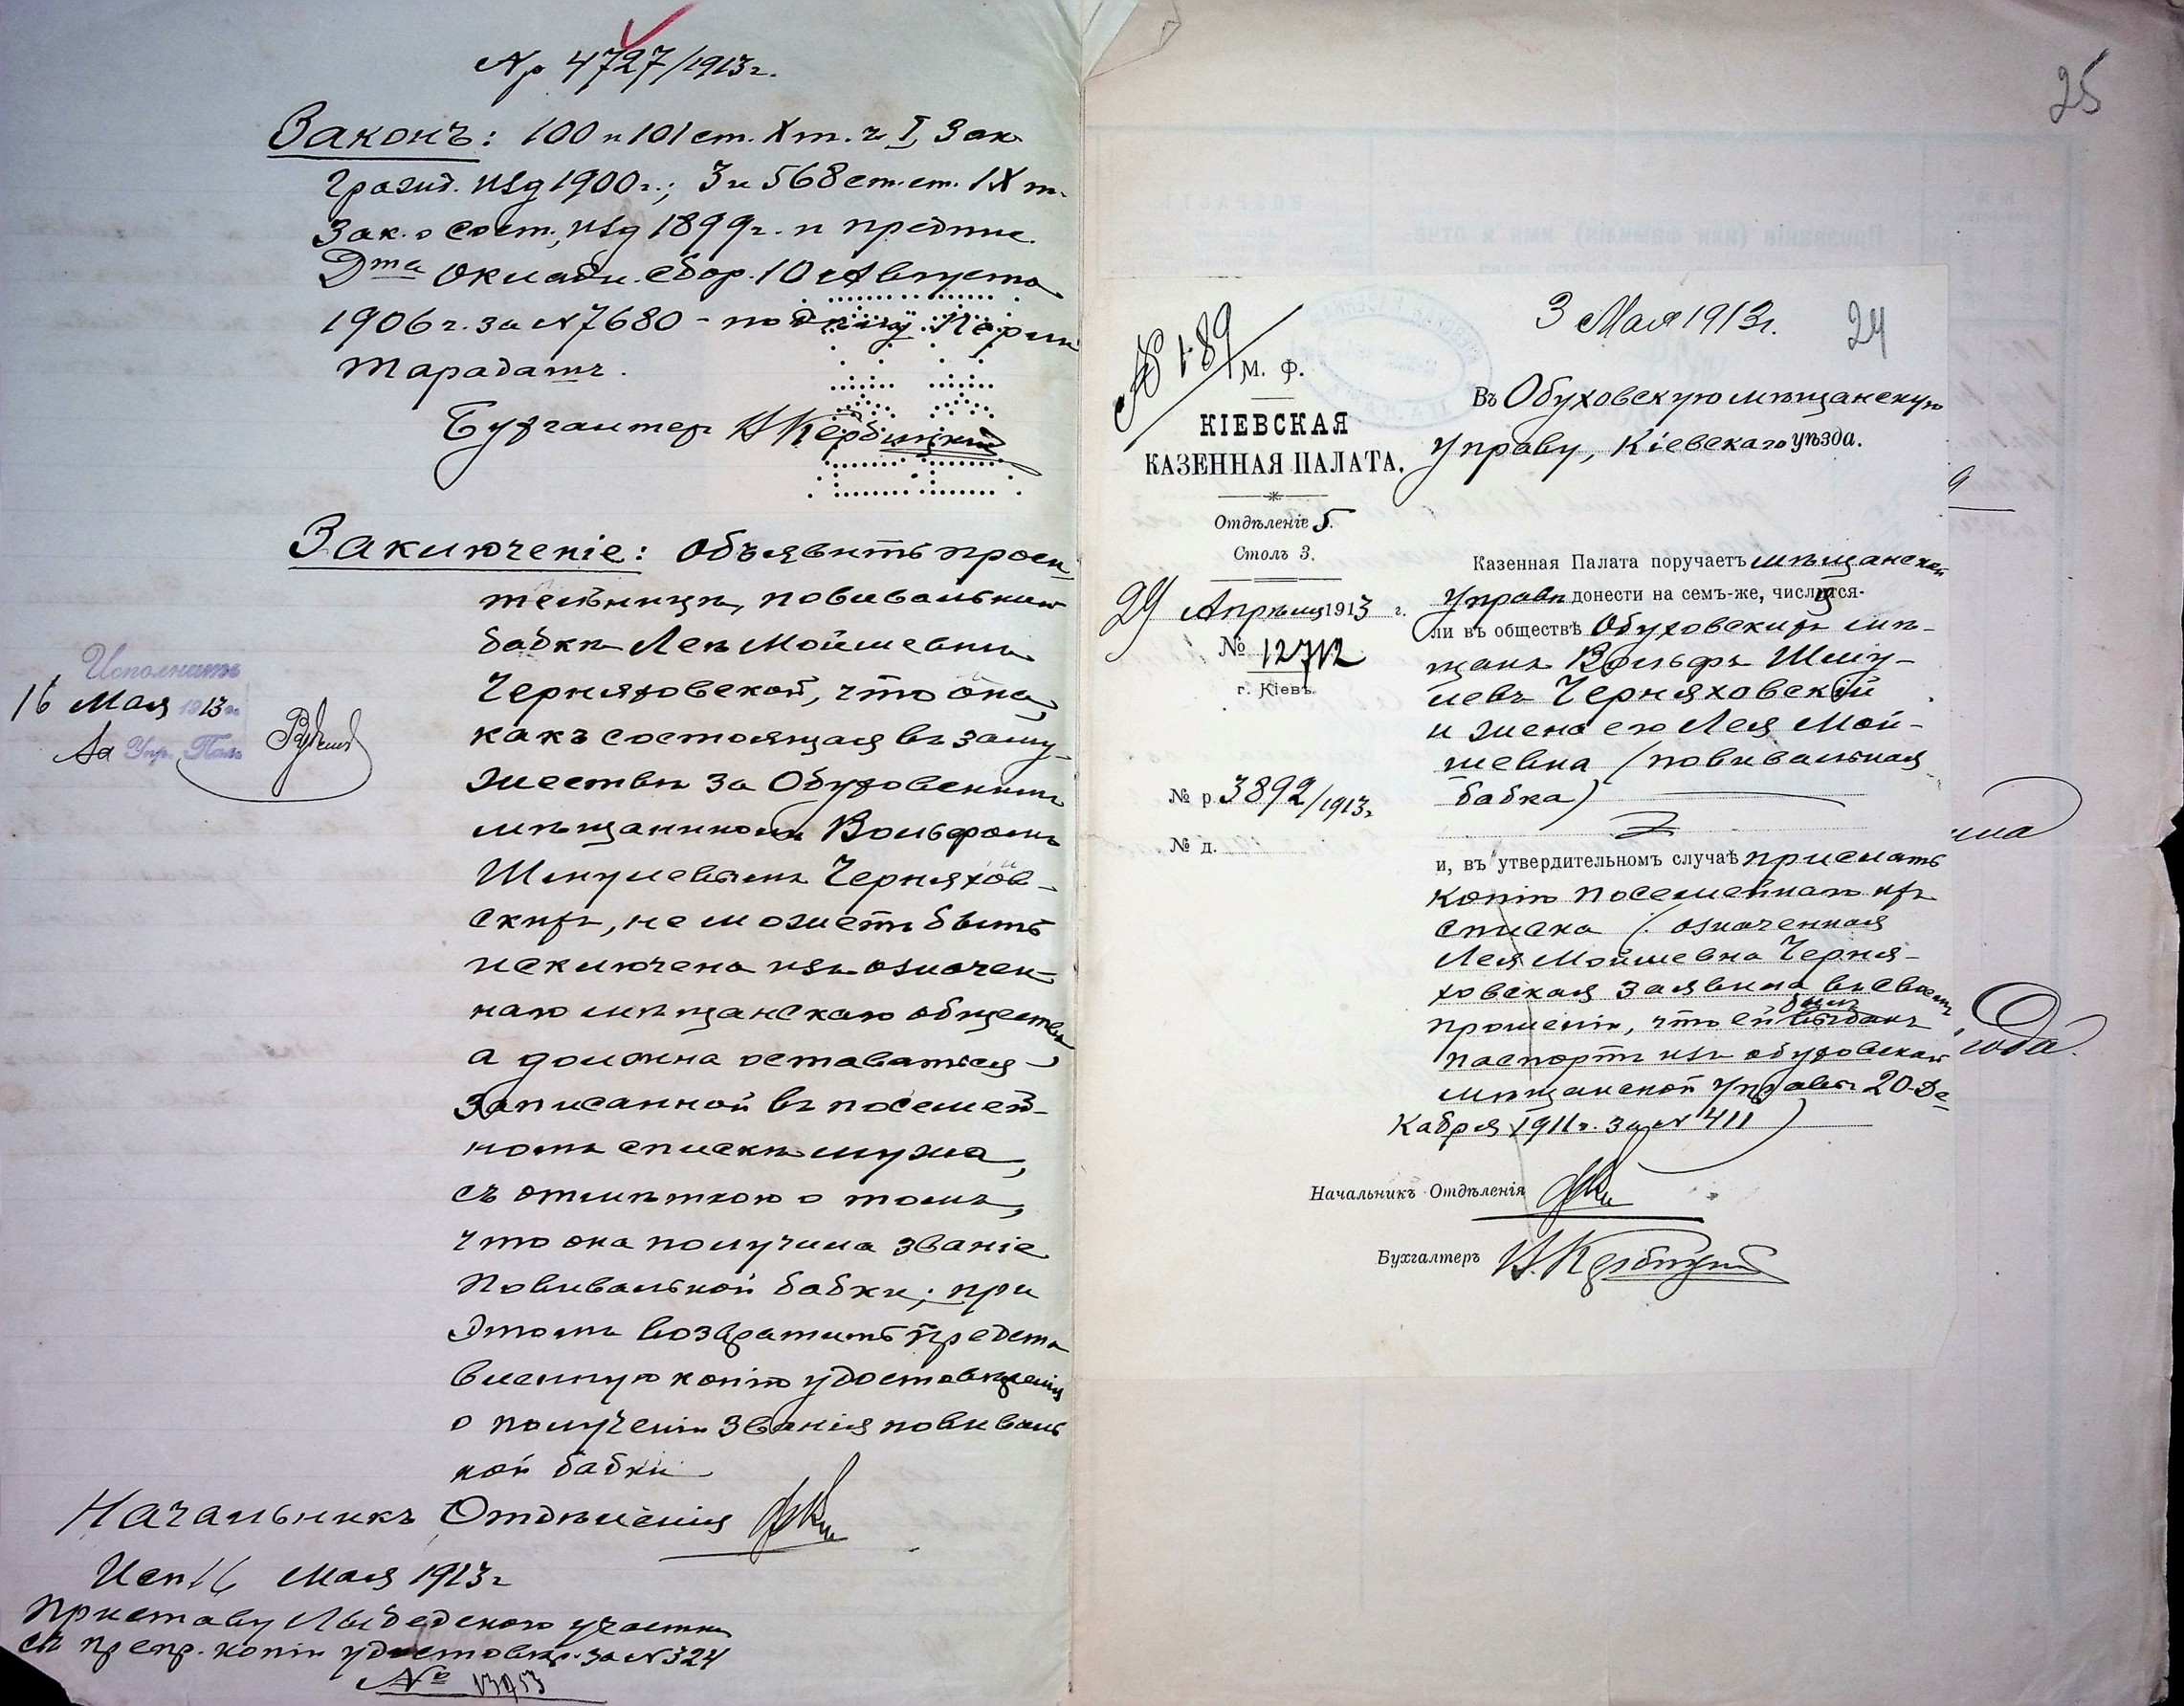 № р 4727/1913 г.
Законъ: 100 и 101 ст. X т. ч. I, Зак.
гражд. изд 1900 г.; 3 и 568 ст. ст. IX т.
Зак. о Сост., изд 1899 г. и предпис.
Дта Окладн. сбор. 10 Августа
1906 г. за № 7680 –
Бухгалтер Н Кербицкий
Заключеніе: Объявить проси-
тельницѣ, повивальной
бабкѣ Леѣ Мойшевнѣ
Черняховской, что она,
какъ состоящая въ заму-
жествѣ за Обуховскимъ
мѣщаниномъ Вольфомъ
Шмулевымъ Черняхов-
скимъ, не можетъ быть
исключена изъ означен-
наго мѣщанскаго общества,
а должна оставаться
записанной въ посемей-
номъ спискѣ мужа,
съ отмѣткою о томъ,
что она получила званіе
Повивальной бабки; при
этомъ возвратить предста
вленную копію удостовѣренія
о полученіи званія повиваль
ной бабки
Исполнить
16 Мая 1913 г.
За Упр. Пал.
Начальникъ Отдѣленія
Исп 16 Мая 1913 г
Приставу Лыбедского участка
съ препр. копіи удостовѣр. за № 324
№ 13953
25
3 Мая 1913 г.
24
№ 189
М. Ф.
КІЕВСКАЯ
КАЗЕННАЯ ПАЛАТА.
Отдѣленіе 5.
Столъ 3.
29 Апрѣля 1913 г.
№ 12712
г. Кіевъ.
№ р. 3892/1913 г
№ д.
Въ Обуховскую мѣщанскую
Управу, Кіевскаго уѣзда.
Казенная Палата поручаетъ мѣщанской
Управѣ донести на семъ-же, числятся-
ли въ обществѣ Обуховскихъ мѣ-
щанъ Вольфъ Шму-
левъ Черняховскій
и жена его Лея Мой-
шевна (повивальная
бабка)
и, въ утвердительномъ случаѣ прислать
копію посемейнаго ихъ
списка (означенная
Лея Мойшевна Черня-
ховская заявила въ своемъ
прошеніи, что ей былъ выданъ
паспортъ изъ обуховской
мѣщанской управы 20 Де-
кабря 1911 г. за № 411)
Начальникъ Отдѣленія
Бухгалтеръ Н. Кербицкий